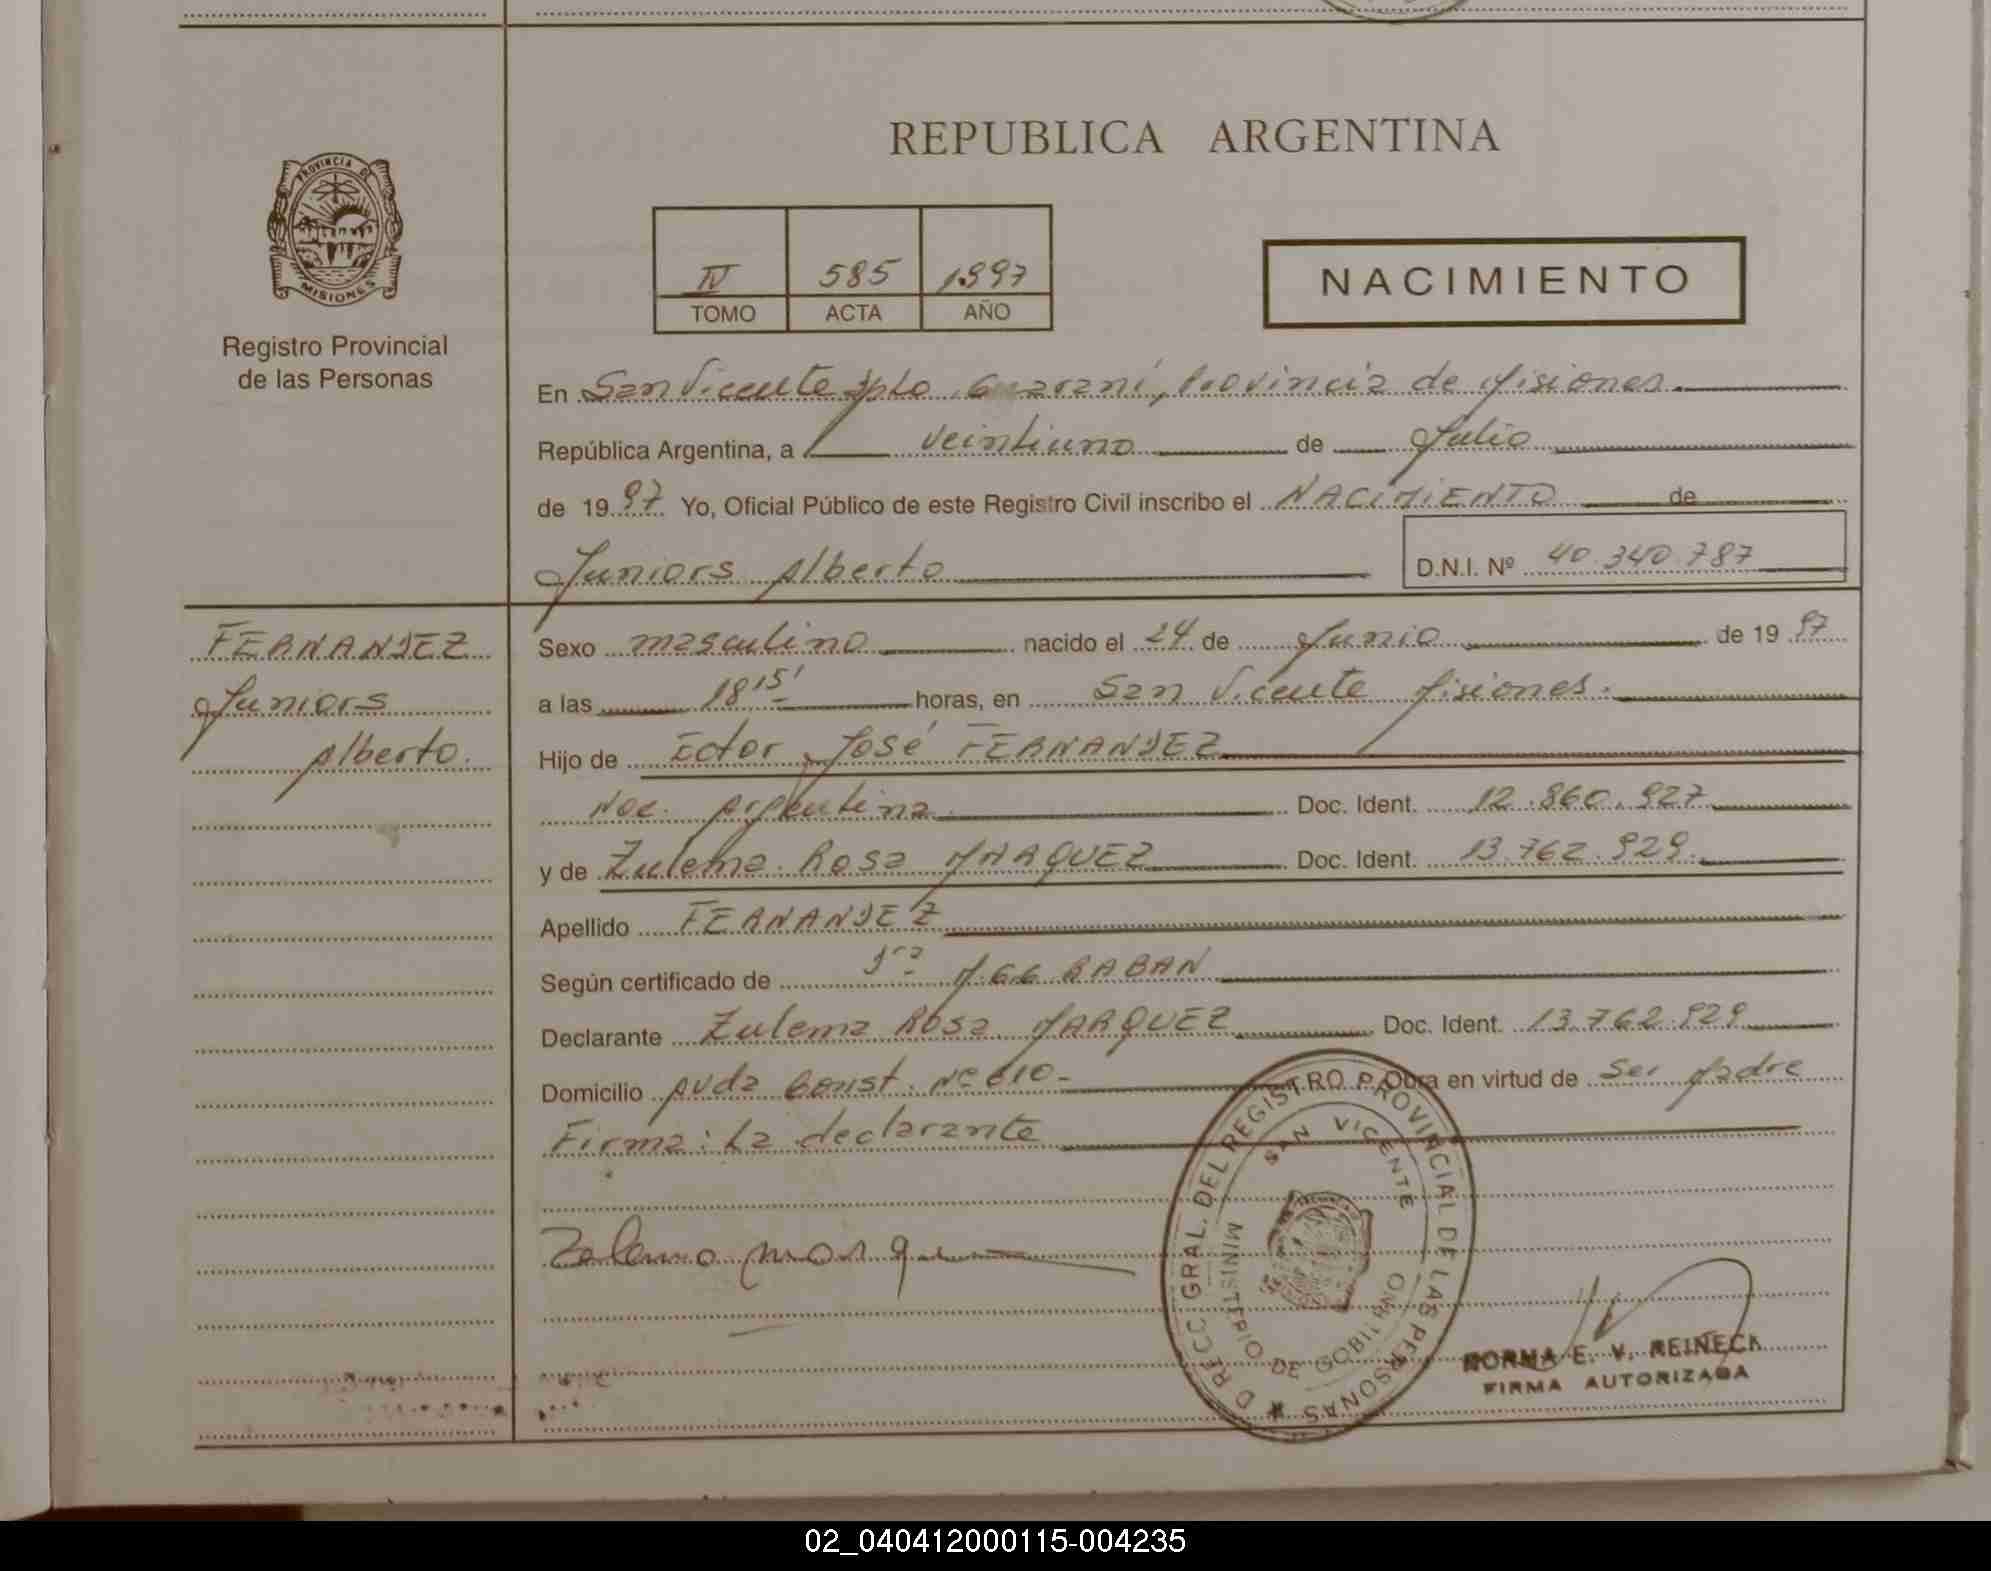 PROVINCIA DE
MISIONES
Registro Provincial
de las Personas
REPUBLICA ARGENTINA
IV 585 1.997
TOMO ACTA AÑO
NACIMIENTO
En San Vicente Dpto. Guaraní, Provincia de Misiones
República Argentina, a veintiuno de Julio
de 1997 Yo, Oficial Público de este Registro Civil inscribo el NACIMIENTO de
Juniors Alberto D.N.I. Nº 40.340.787
FERNANDEZ
Juniors
Alberto.
Sexo masculino nacido el 24 de Junio de 1997
a las 18 15' horas, en San Vicente Misiones.
Hijo de Ector José FERNANDEZ
Nac. Argentina. Doc. Ident. 12.860.927
y de Zulema Rosa MARQUEZ Doc. Ident. 13.762.929.
Apellido FERNANDEZ
Según certificado de Dra. RABAN
Declarante Zulema Rosa MARQUEZ Doc. Ident. 13.762.929
Domicilio Avda Const. Nº 610- Obra en virtud de Ser Madre
Firma: La declarante
DIRECC. GRAL. DEL REGISTRO PROVINCIAL DE LAS PERSONAS
SAN VICENTE
MINISTERIO DE GOBIERNO
NORMA E. V. REINECK
FIRMA AUTORIZADA
02_040412000115-004235